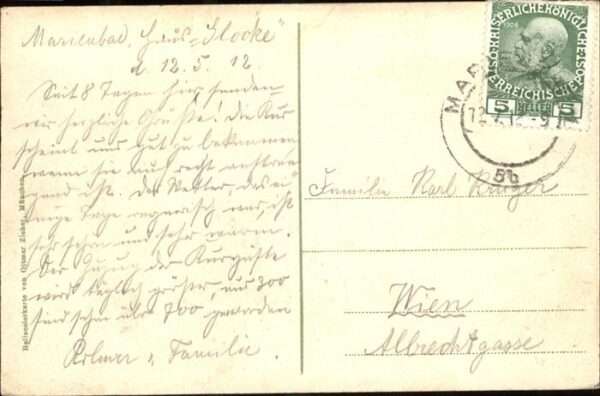 Marienbad, Haus "Glocke"
d. 12.5.12.
Seit 8 Tagen hier senden
wir herzliche Grüße! Die Kur
scheint uns gut zu bekommen
wenn sie auch recht anstren
gend ist. Das Wetter, das ei
nige Tage regnerisch war, ist
sehr schön und sehr warm.
Der Zuzug der Kurgäste
wird täglich größer, aus 300
sind schon über 700 geworden
Familie.
Heliocolorkarte von Ottmar Zieher, München
KAISERLICHEKÖNIGLICHE
ÖSTERREICHISCHE POST
1908
5 HELLER 5
MAR
5b
Familie Karl Krüger
Wien
Albrechtgasse